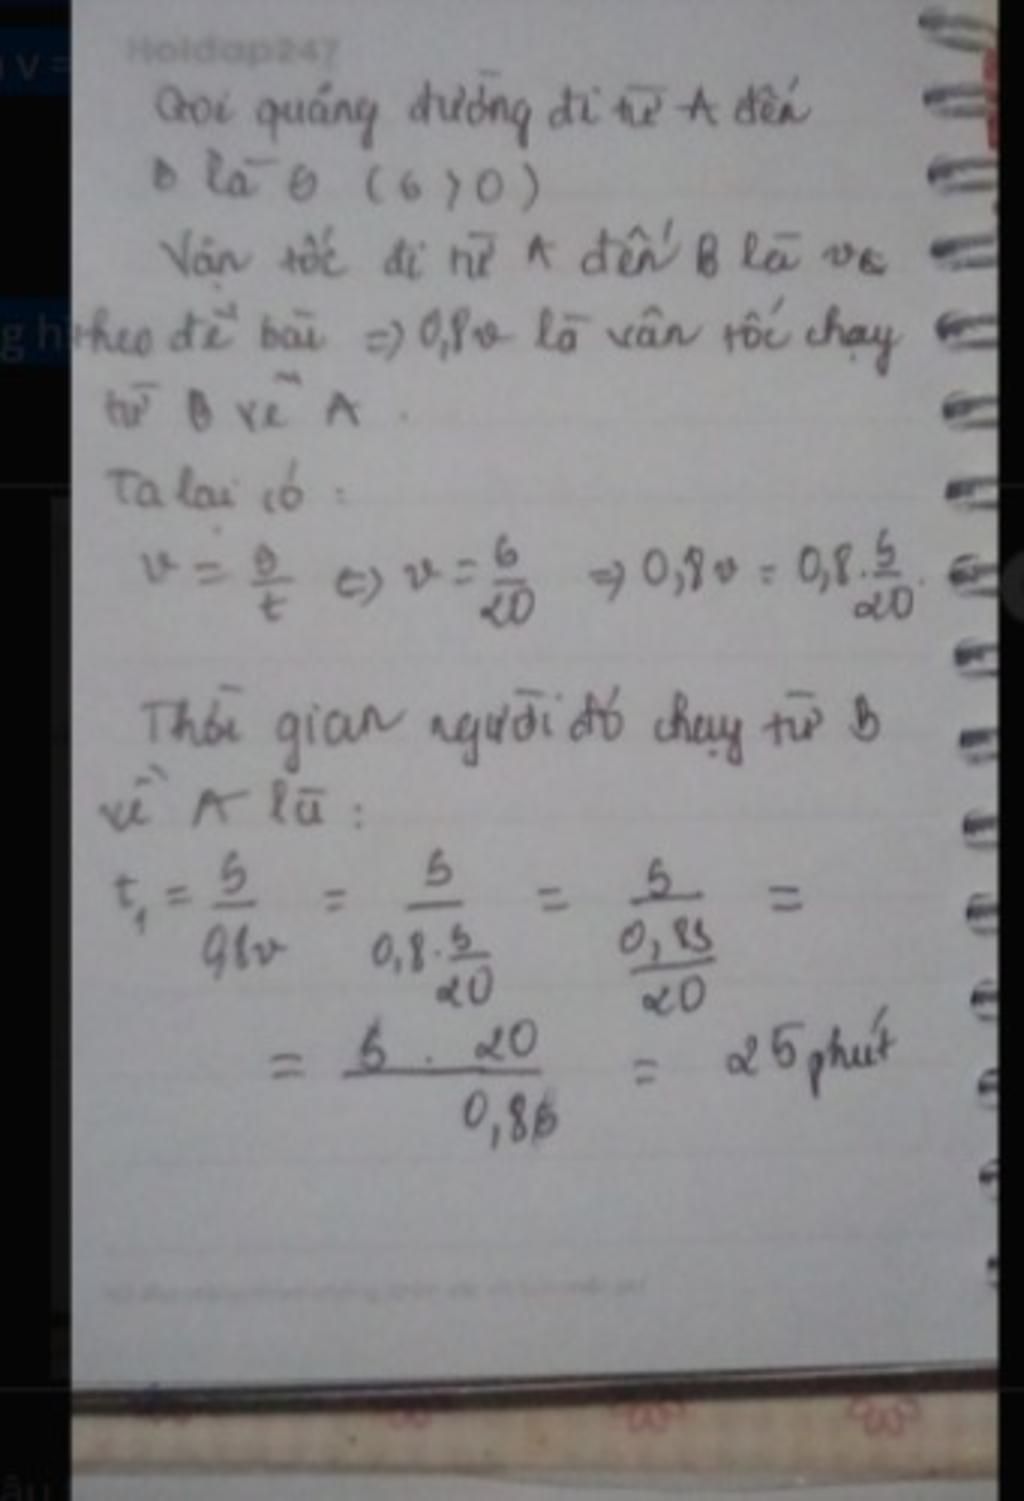 Hoidap247
Gọi quãng đường đi từ A đến
B là s (s > 0)
Vận tốc đi từ A đến B là v
theo đề bài => 0,8v là vận tốc chạy
từ B về A.
Ta lại có :
v = s/t <=> v = s/20 => 0,8v = 0,8.s/20.
Thời gian người đó chạy từ B
về A là :
t₁ = s/0,8v = s/(0,8.s/20) = s/(0,8s/20) =
= s . 20/0,8s = 25 phút